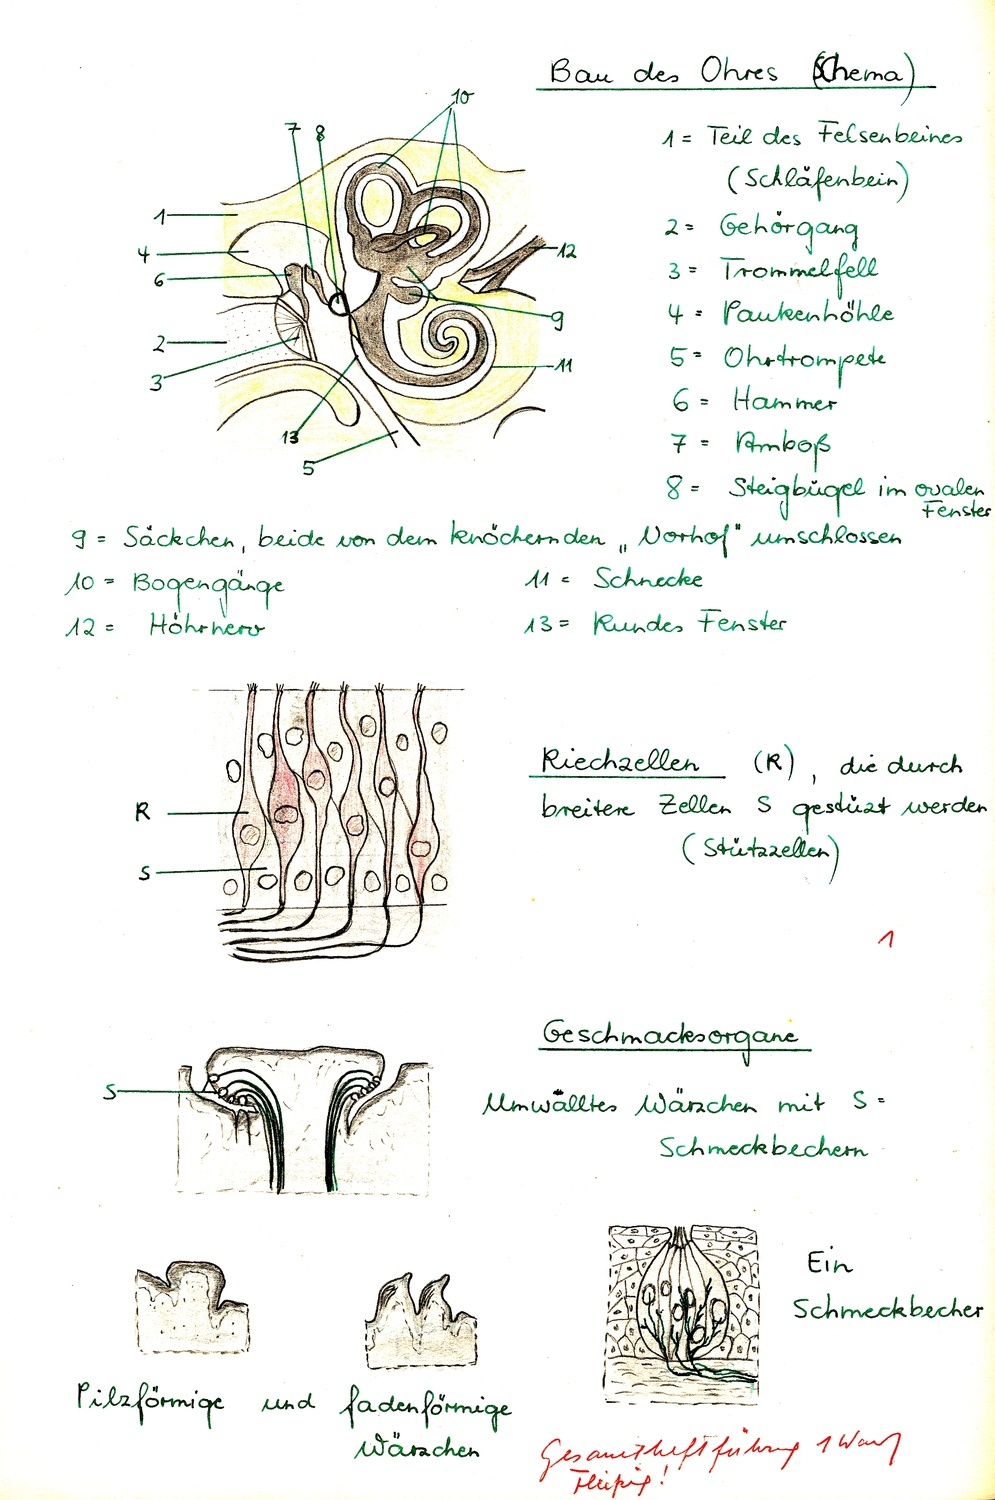 Bau des Ohres (Schema)
10
7 8
1
4
6
2
3
13
5
12
9
11
1 = Teil des Felsenbeines
(Schläfenbein)
2 = Gehörgang
3 = Trommelfell
4 = Paukenhöhle
5 = Ohrtrompete
6 = Hammer
7 = Amboß
8 = Steigbügel im ovalen
Fenster
9 = Säckchen, beide von dem knöchernden „Vorhof" umschlossen
10 = Bogengänge
11 = Schnecke
12 = Höhrnerv
13 = Rundes Fenster
R
S
Riechzellen (R), die durch
breitere Zellen S gestüzt werden
(Stützzellen)
1
Geschmacksorgane
S
Umwälltes Wärzchen mit S =
Schmeckbechern
Ein
Schmeckbecher
Pilzförmige und fadenförmige
Wärzchen
Gesamtheftführung 1
Fleißig!